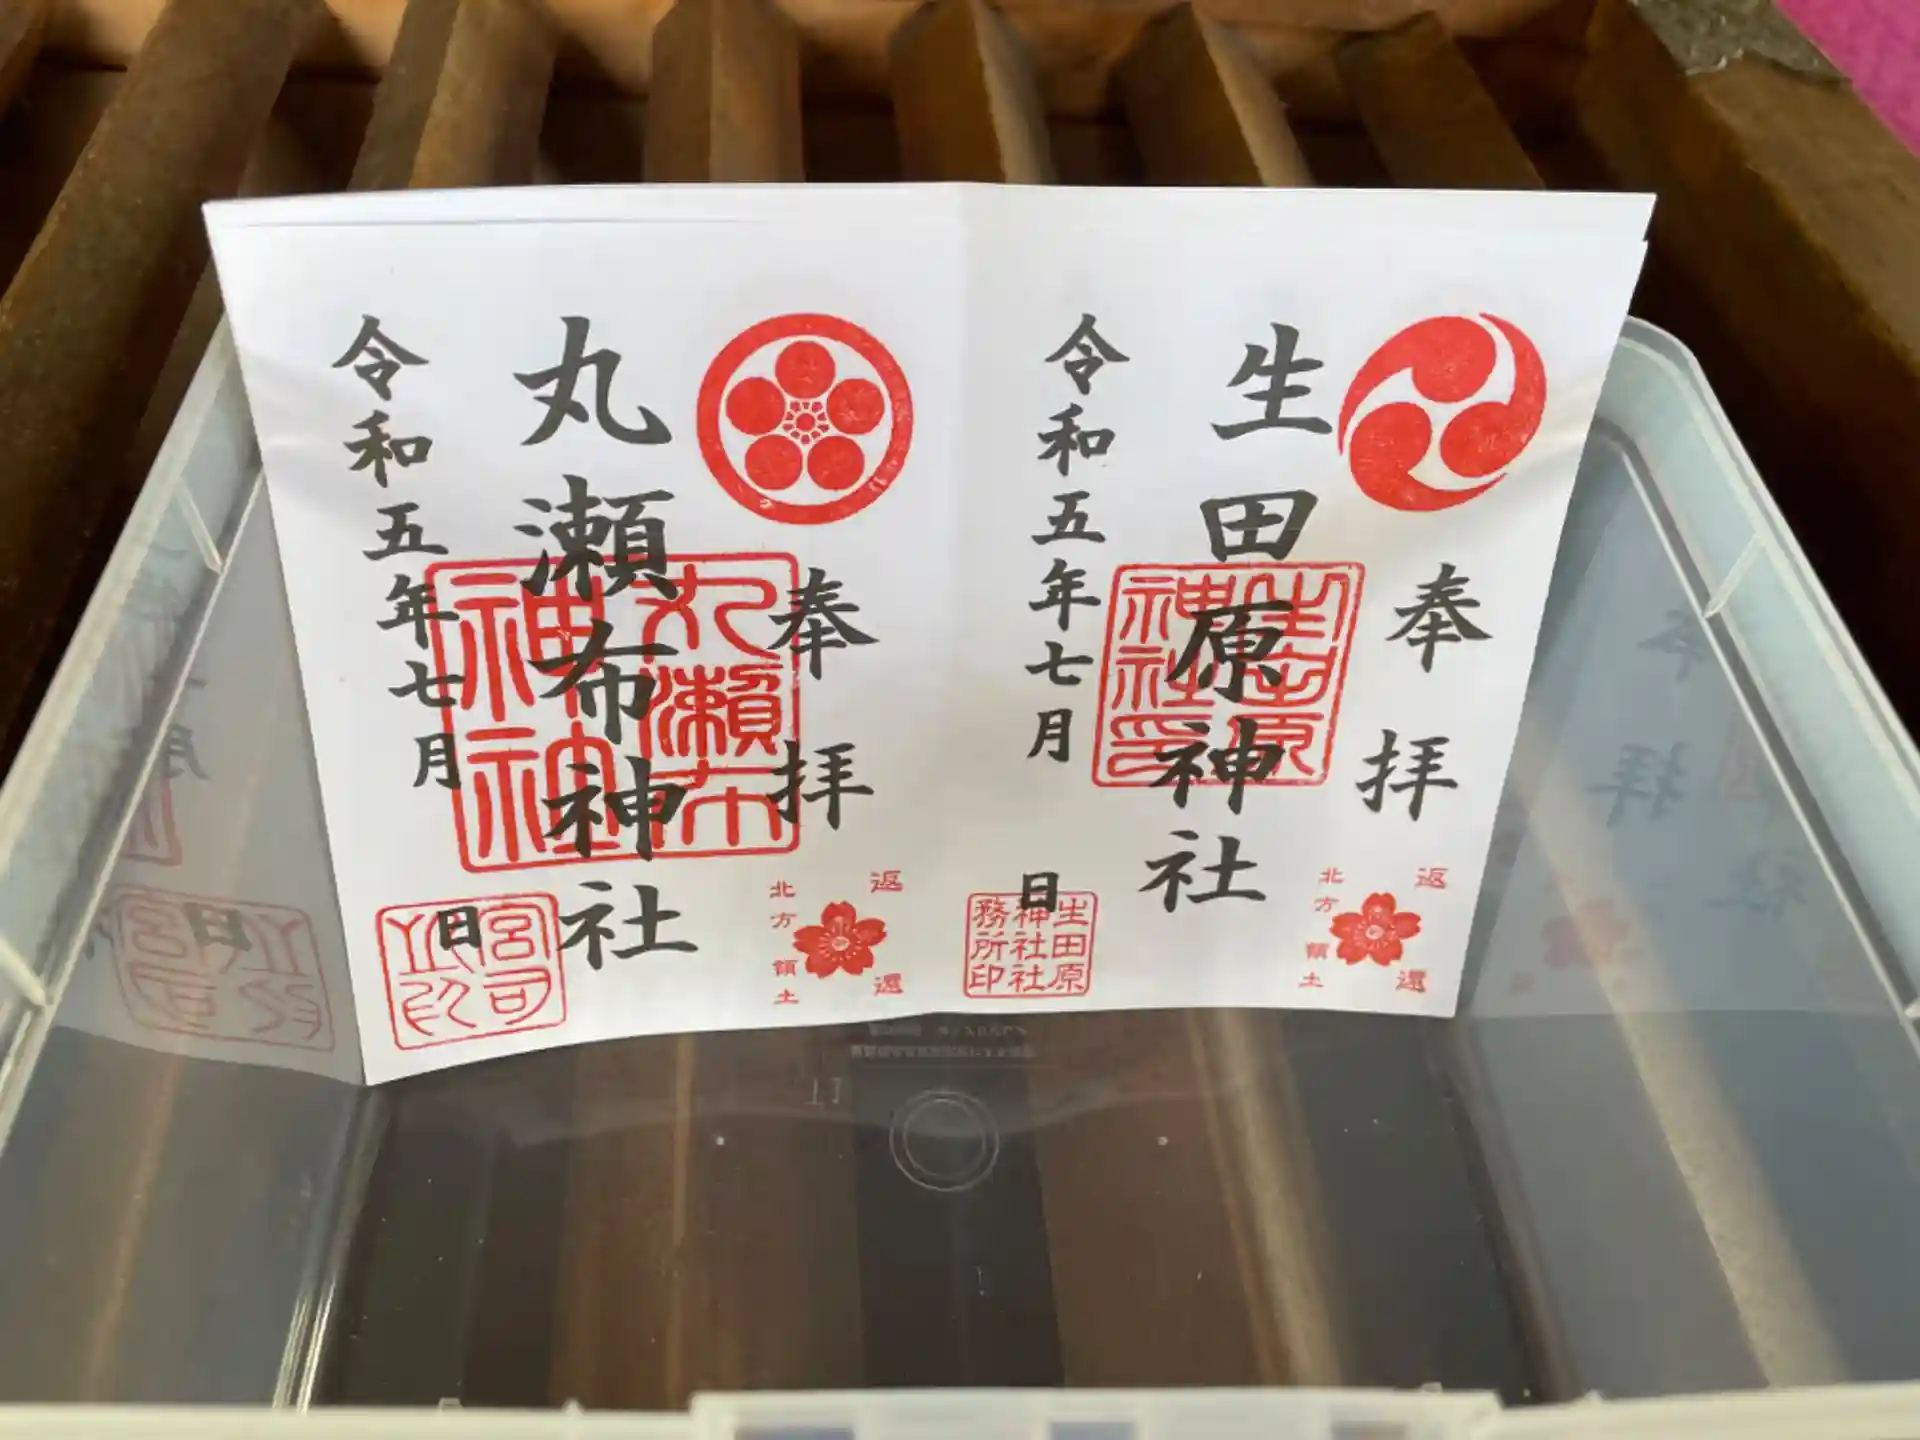 奉拝
生田原神社
生田原神社印
令和五年七月 日
生田原神社社務所印
返還
北方領土
奉拝
丸瀬布神社
令和五年七月 日
返還
北方領土